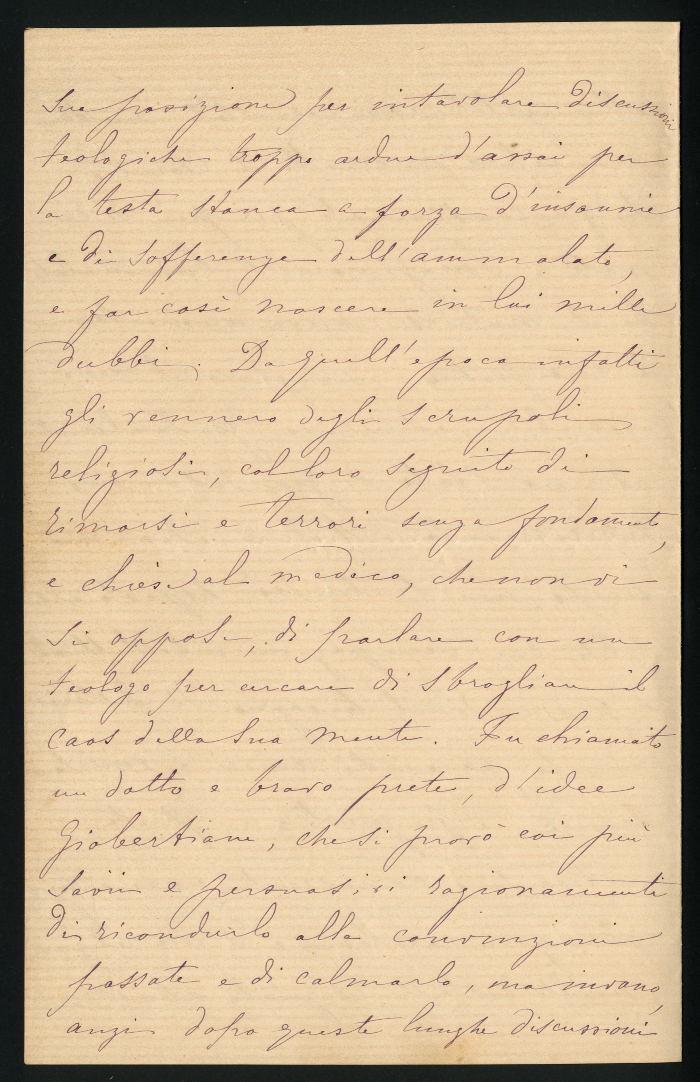 sua posizione per intavolare discussioni
teologiche troppo ardue d'assai per
la testa stanca a forza d'insonnie
e di sofferenze dell'ammalato,
e far così nascere in lui mille
dubbi. Da quell'epoca infatti
gli vennero degli scrupoli
religiosi, col loro seguito di
rimorsi e terrori senza fondamento,
e chiese al medico, che non vi
si oppose, di parlare con un
teologo per cercare di sbrogliare il
caos della sua mente. Fu chiamato
un dotto e bravo prete, d'idee
Giobertiane, che si provò coi più
savii e persuasivi ragionamenti
di ricondurlo alle convinzioni
passate e di calmarlo, ma invano,
anzi dopo queste lunghe discussioni